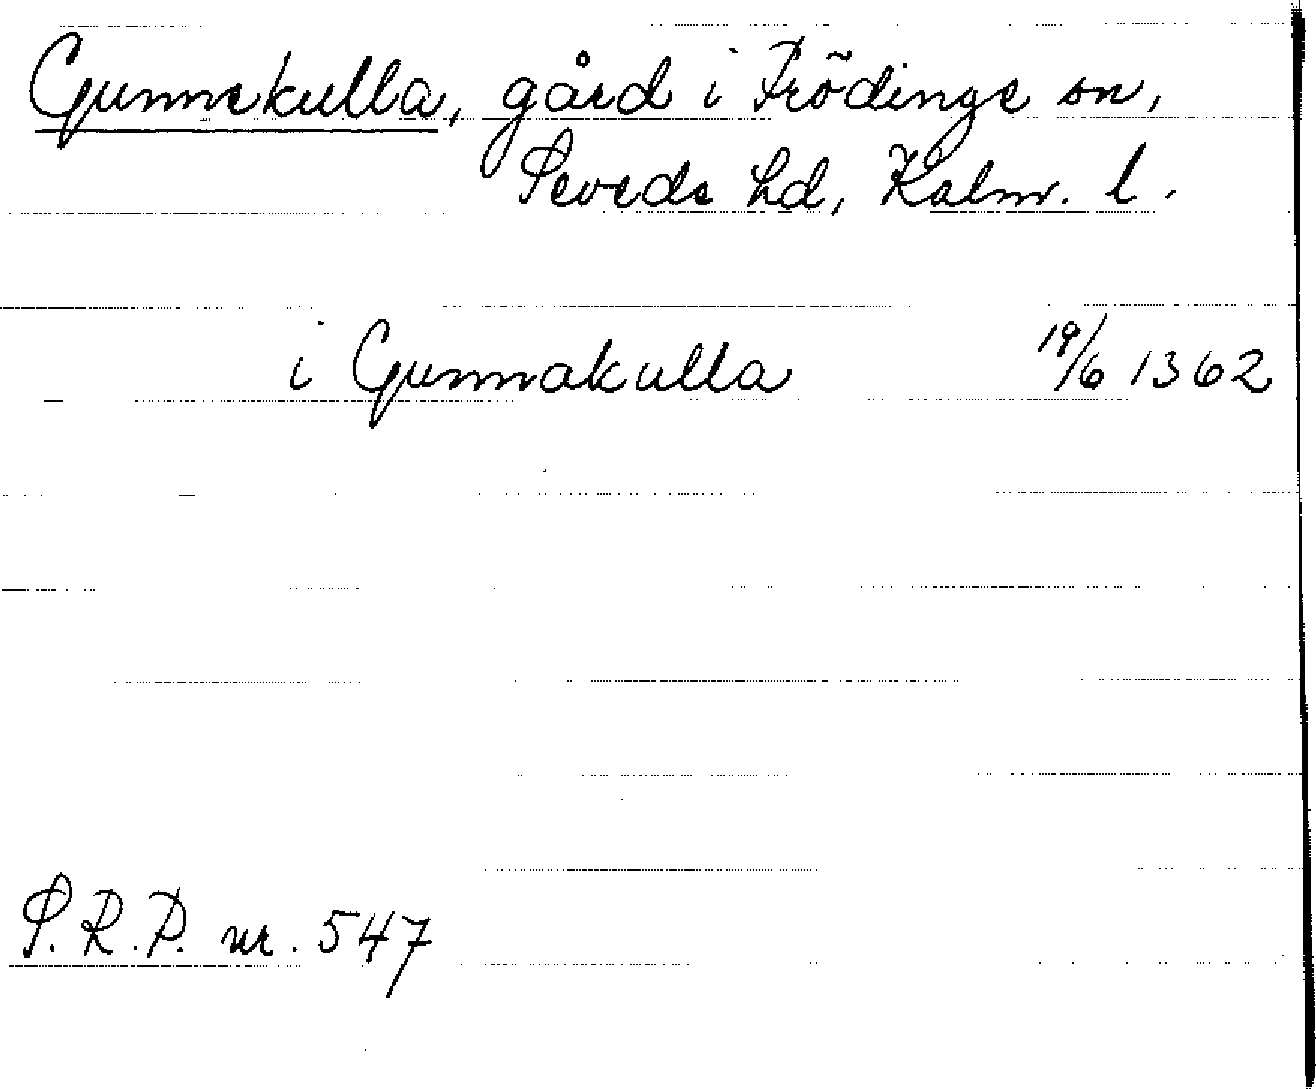 Gunnekulla, gård i Frödinge sn,
Sevede hd, Kalm. l.
i Gunnakulla 19/6 1362
S.R.P. nr. 547